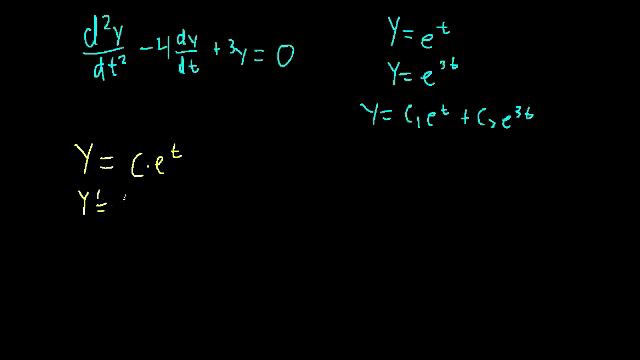 d²y/dt² - 4 dy/dt + 3y = 0
y = e^t
y = e^3t
y = c₁e^t + c₂e^3t
y = c·e^t
y' =